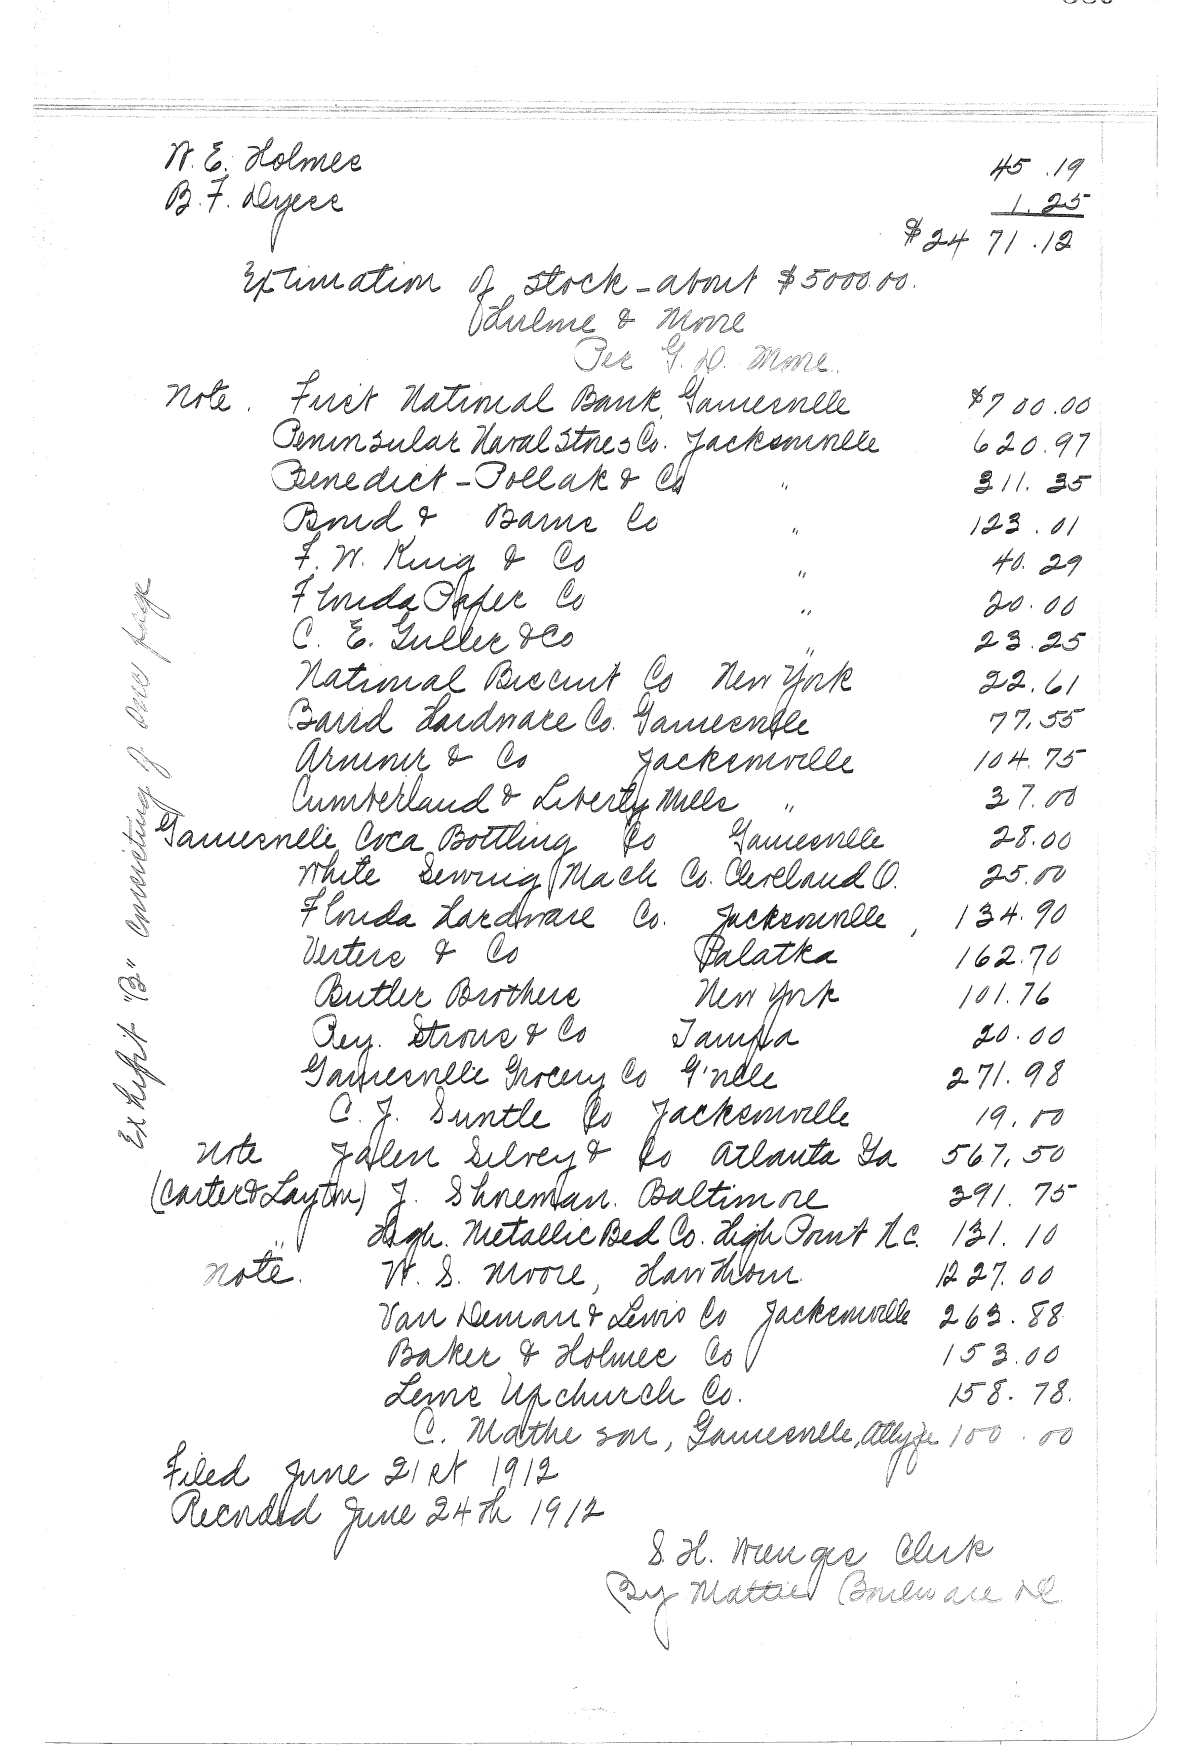 W. E. Holmes 45.19
B. F. Dyess 1.25
$2471.12
Estimation of stock - about $5000.00.
Hulme & Moore
Per G. D. Moore.
Note. First National Bank, Gainesville $700.00
Peninsular Naval Stores Co. Jacksonville 620.97
Benedict - Pollak & Co " 311.35
Bond & Co " 123.01
F. W. King & Co " 40.29
Florida Paper Co " 20.00
C. E. & Co " 23.25
National Biscuit Co New York 22.61
Baird Hardware Co. Gainesville 77.55
Armour & Co Jacksonville 104.75
Cumberland & Liberty Mills " 37.00
Gainesville Coca Bottling Co Gainesville 28.00
White Sewing Mach Co. Cleveland O. 25.00
Florida Hardware Co. Jacksonville, 134.90
Verters & Co Palatka 162.70
Butler Brothers New York 101.76
Strous & Co Tampa 20.00
Gainesville Grocery Co G'ville 271.98
C. J. Co Jacksonville 19.00
Note Silvey & Co Atlanta Ga 567.50
(Carter & Layton) J. Shoneman. Baltimore 391.75
" High. Metallic Bed Co. High Point N.C. 131.10
Note. W. S. Moore, Hawthorn. 1227.00
Van Deman & Lewis Co Jacksonville 263.88
Baker & Holmes Co 153.00
Upchurch Co. 158.78.
C. Matheson, Gainesville, 100.00
Filed June 21st 1912
Recorded June 24th 1912
S. H. Wienges Clerk
By Mattie Boulware DC
Exhibit "B" consisting of one page